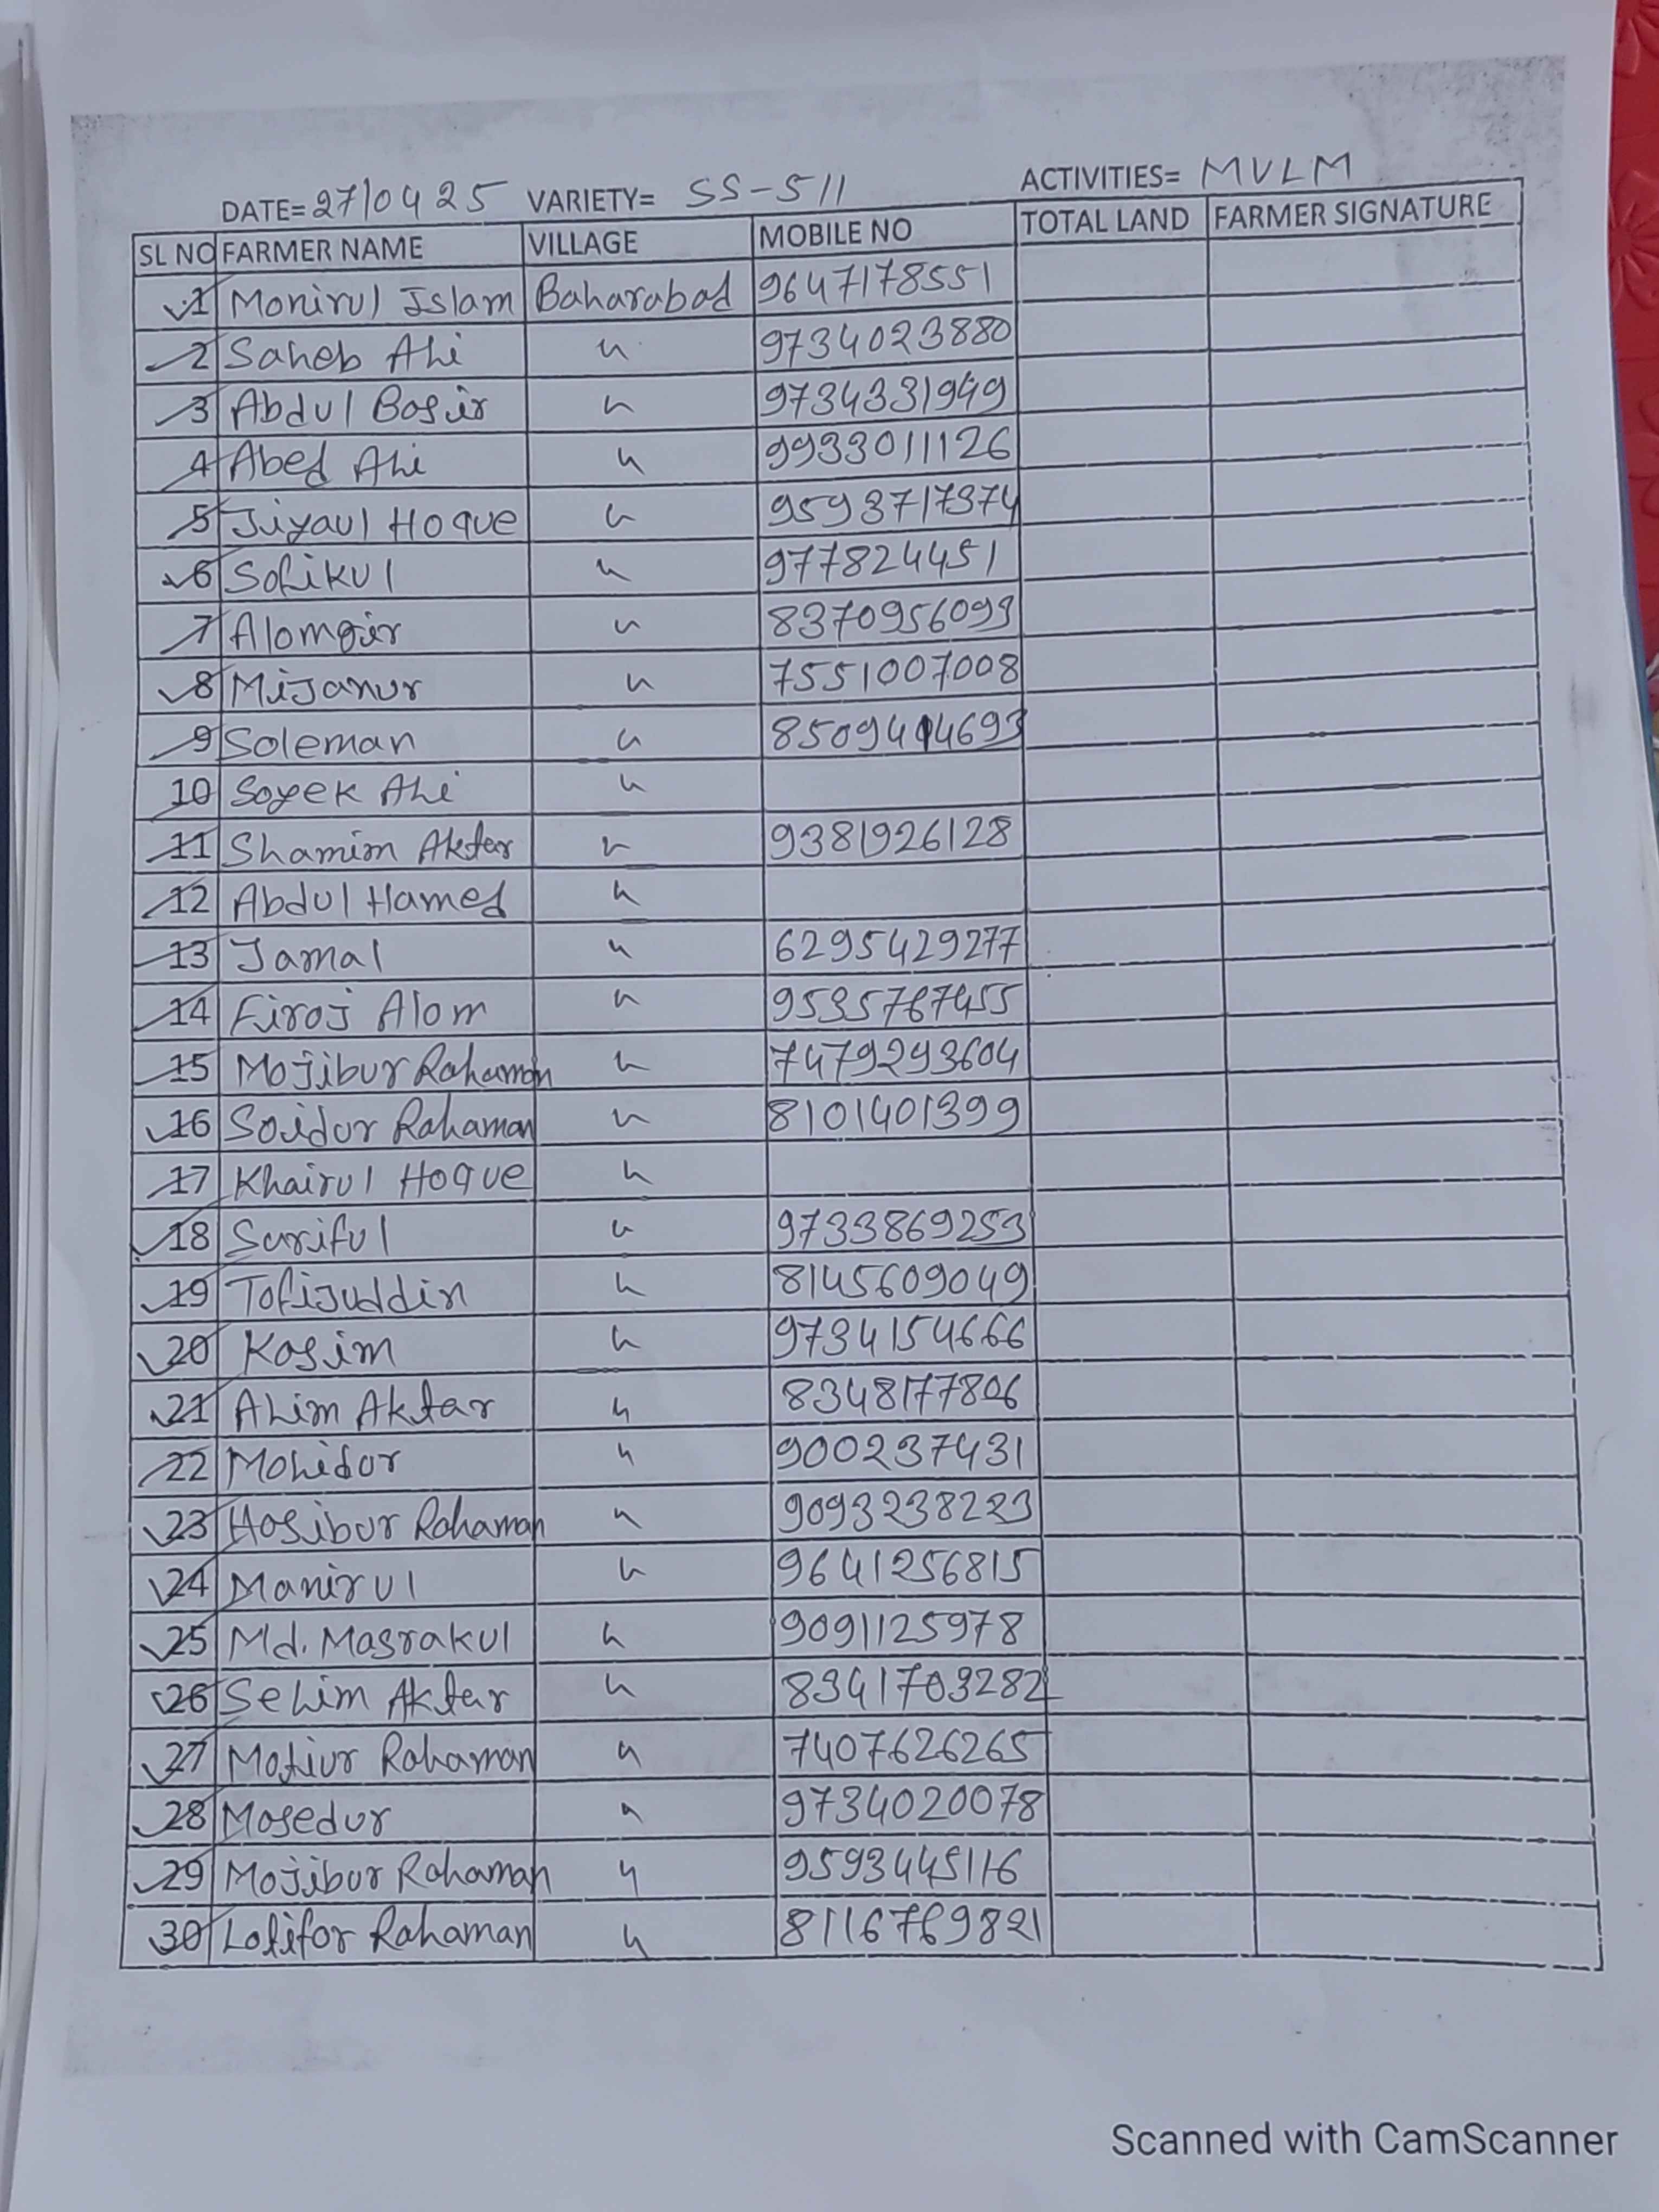 DATE= 27/04 25 VARIETY= SS-511 ACTIVITIES= MVLM
SL NO FARMER NAME VILLAGE MOBILE NO TOTAL LAND FARMER SIGNATURE
1 Monirul Islam Baharabad 9647178551
2 Saheb Ali " 9734023880
3 Abdul Bosir " 9734331949
4 Abed Ali " 9933011126
5 Jiyaul Hoque " 9593717374
6 Sofikul " 977824451
7 Alomgir " 8370956093
8 Mijanur " 7551007008
9 Soleman " 8509414693
10 Soyek Ali "
11 Shamim Aktar " 9381926128
12 Abdul Hamed "
13 Jamal " 6295429277
14 Firoj Alom " 9535767455
15 Mojibur Rahaman " 7479293604
16 Soidur Rahaman " 8101401399
17 Khairul Hoque "
18 Sariful " 9733869253
19 Tofijuddin " 8145609049
20 Kosim " 9734154666
21 Alim Aktar " 8348177806
22 Mohidur " 900237431
23 Hosibur Rahaman " 9093238223
24 Manirul " 9641256815
25 Md. Masrakul " 9091125978
26 Selim Aktar " 8341703282
27 Motiur Rahaman " 7407626265
28 Mosedur " 9734020078
29 Mojibur Rahaman " 9593445116
30 Lotifor Rahaman " 8116769821
Scanned with CamScanner